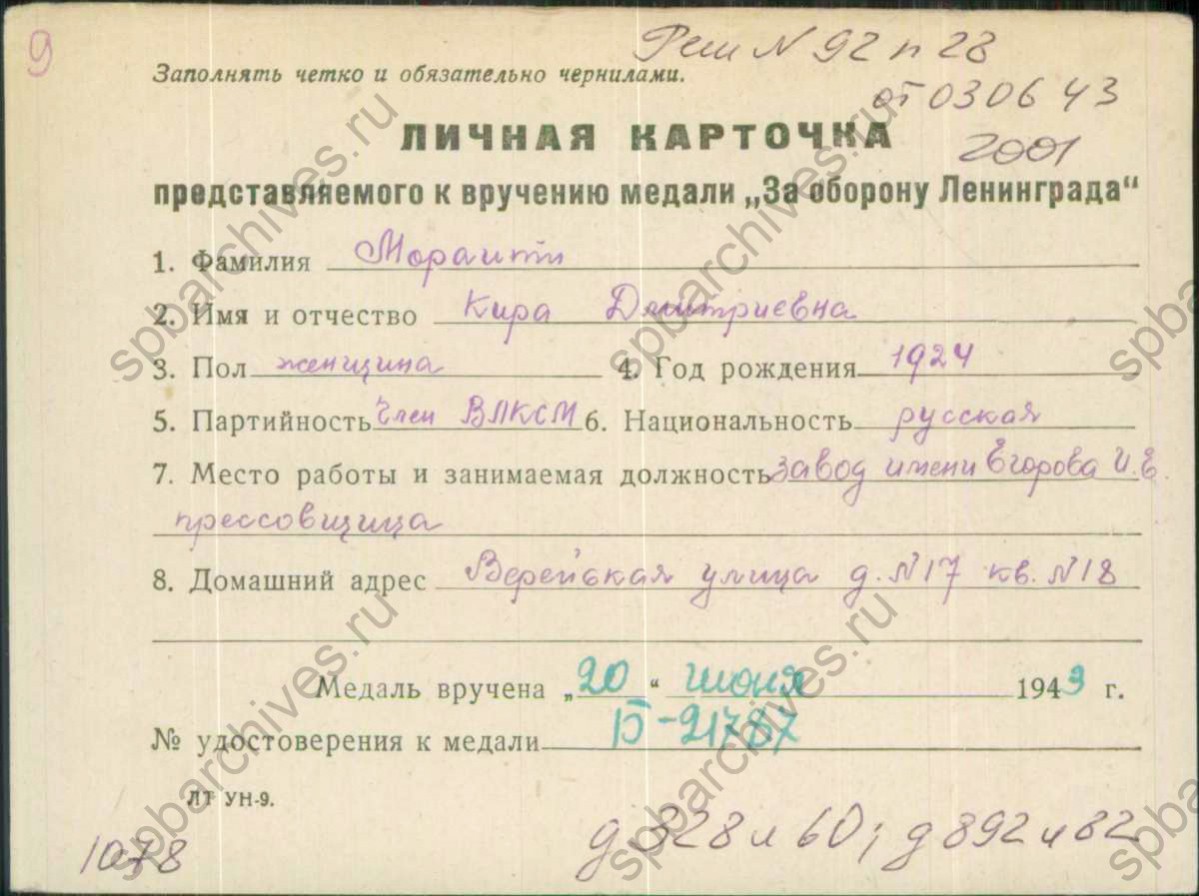 9
Реш N 92 п 28
Заполнять четко и обязательно чернилами.
от 030643
ЛИЧНАЯ КАРТОЧКА
2001
представляемого к вручению медали „За оборону Ленинграда“
1. Фамилия Мораити
2. Имя и отчество Кира Дмитриевна
3. Пол женщина 4. Год рождения 1924
5. Партийность Член ВЛКСМ 6. Национальность русская
7. Место работы и занимаемая должность завод имени Егорова И.Е.
прессовщица
8. Домашний адрес Верейская улица д. N17 кв. N18
Медаль вручена „20“ июня 1943 г.
№ удостоверения к медали Б-21787
ЛТ УН-9.
1078
д 828 л 60; д 892 л 82
spbarchives.ru
spbarchives.ru
spbarchives.ru
spbarchives.ru